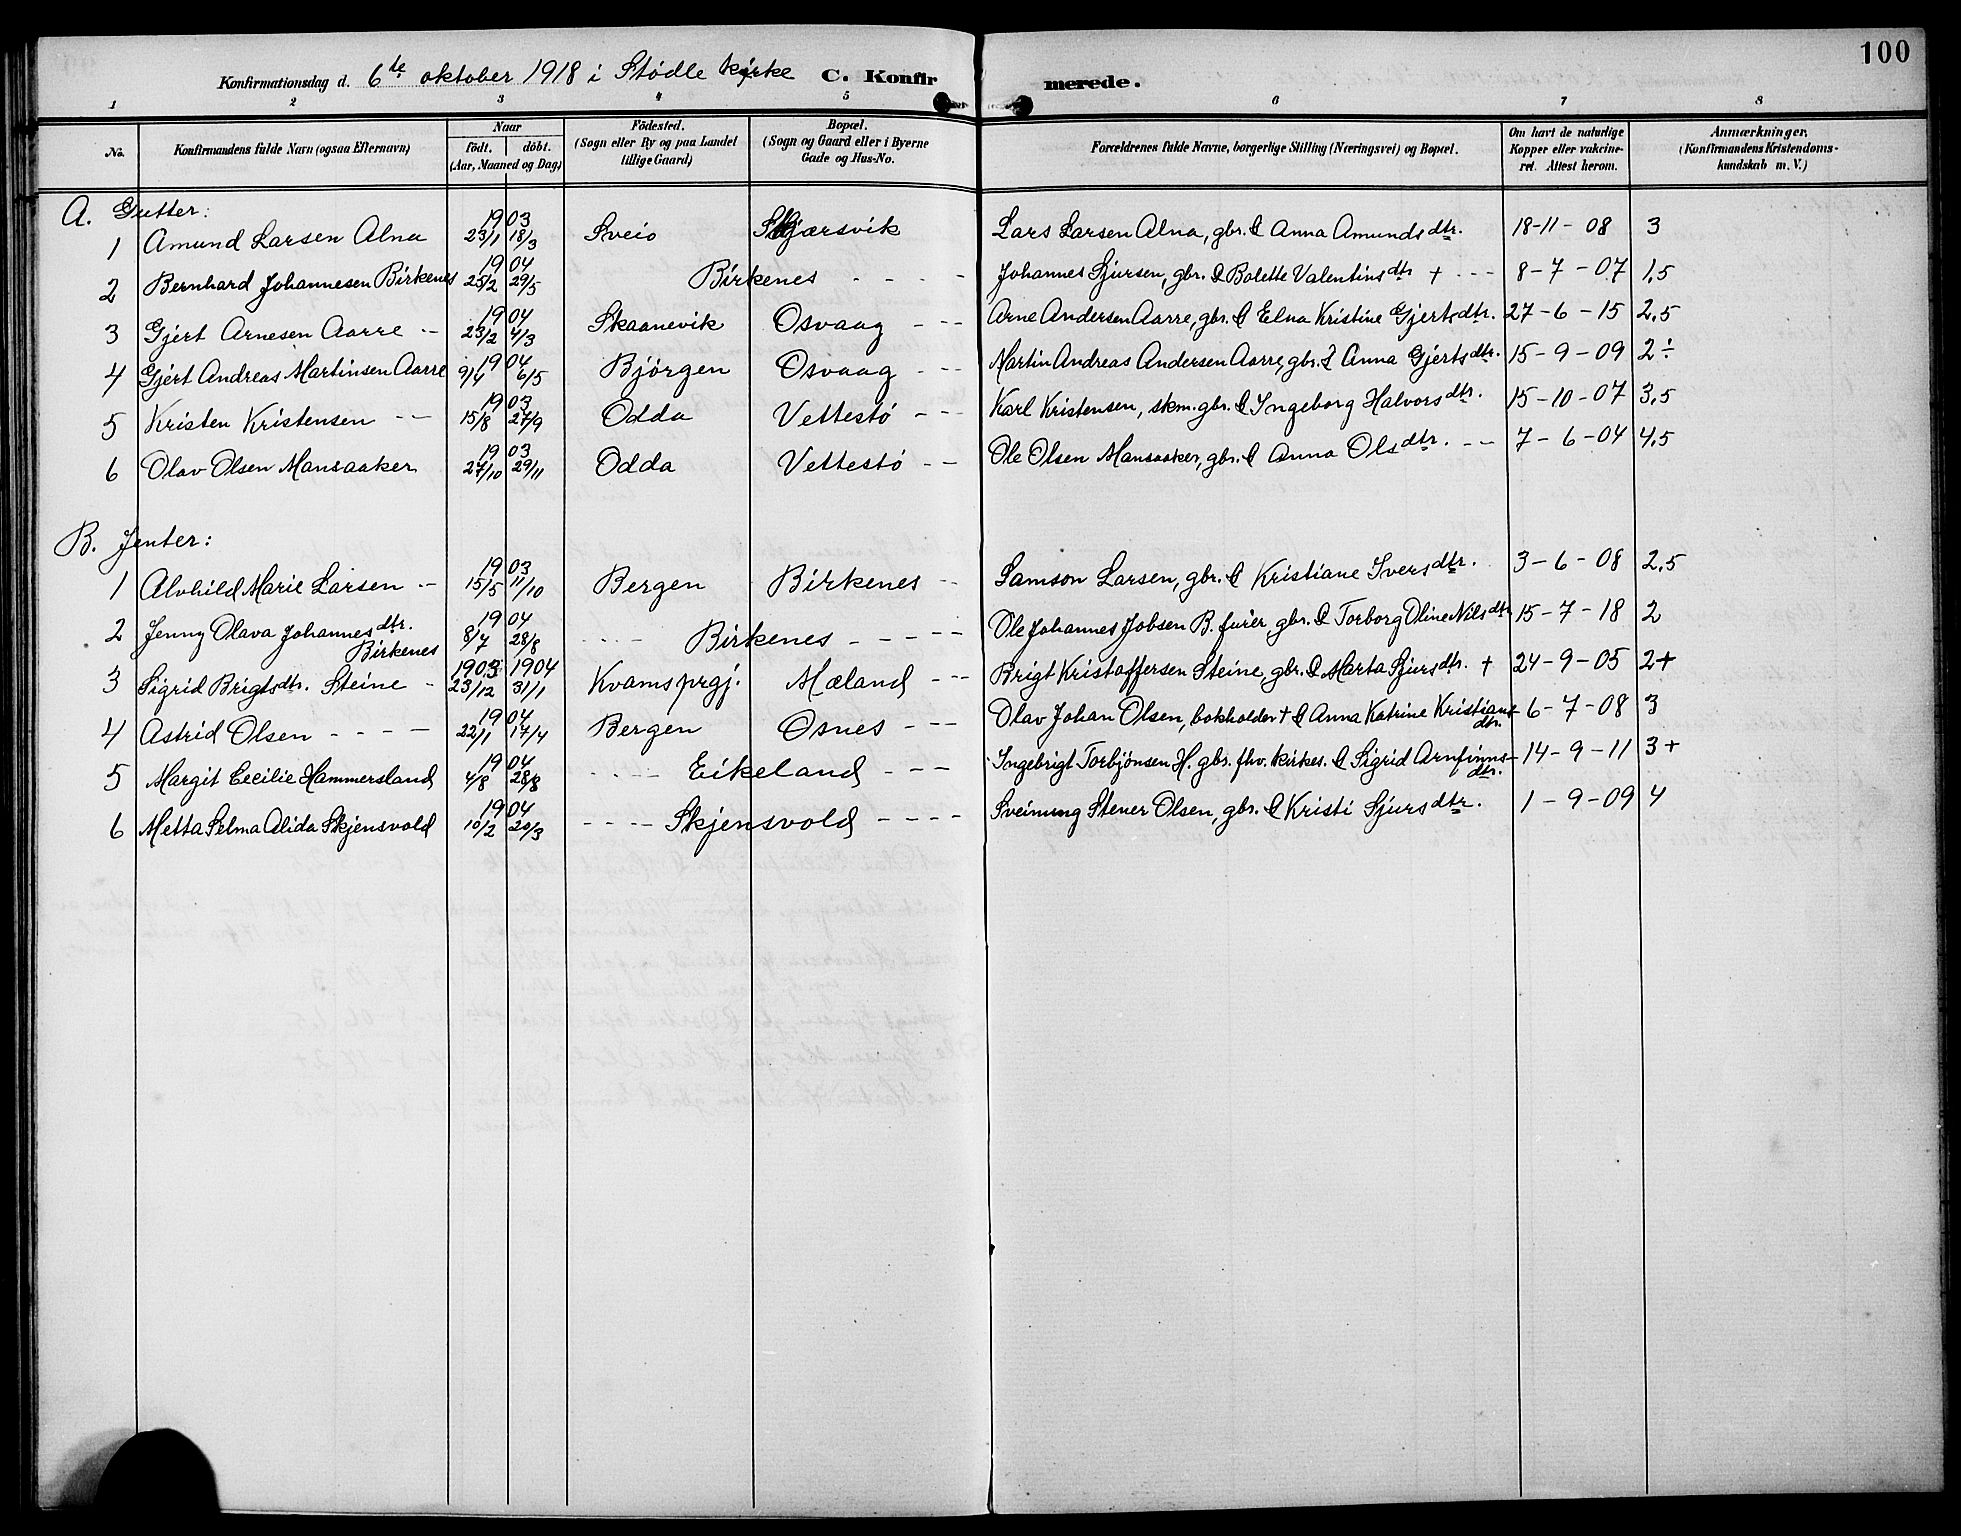 100
Konfirmationsdag d. 6te oktober 1918 i Stødle kirke C. Konfirmerede.
1 2 3 4 5 6 7 8
No. Konfirmandens fulde Navn (ogsaa Efternavn) Naar født. døbt. (Aar, Maaned og Dag) Födested. (Sogn eller By og paa Landet tillige Gaard) Bopæl. (Sogn og Gaard eller i Byerne Gade og Hus-No. Forældrenes fulde Navne, borgerlige Stilling (Næringsvei) og Bopæl. Om havt de naturlige Kopper eller vakcineret. Attest herom. Anmærkninger. (Konfirmandens Kristendomskundskab m. V.)
A. Gutter:
1 Amund Larsen Alna 1903 23/1 18/3 Sveio Skjærsvik Lars Larsen Alna, gbr. & Anna Amundsdtr. 18-11-08 3
2 Bernhard Johannesen Birkenes 1904 25/2 29/5 Birkenes - - - - Johannes Sjursen, gbr. & Bolette Valentinsdtr + - - - 8-7-07 1,5
3 Gjert Arnesen Aarre - - 1904 23/2 4/3 Skaanevik Osvaag - - - Arne Andersen Aarre, gbr. & Elna Kristine Gjertsdtr. 27-6-15 2,5
4 Gjert Andreas Martinsen Aarre 1904 9/4 6/5 Bjørgen Osvaag - - - Martin Andreas Andersen Aarre, gbr. & Anna Gjertsdtr. 15-9-09 2÷
5 Kristen Kristensen - - 1903 15/8 27/9 Odda Vettestø - - - Karl Kristensen, skm. gbr. & Ingeborg Halvorsdtr. 15-10-07 3,5
6 Olav Olsen Mansaaker 1903 27/10 29/11 Odda Vettestø - - Ole Olsen Mansaaker, gbr. & Anna Olsdtr. - - 7-6-04 4,5
B. Jenter:
1 Alvhild Marie Larsen - - 1903 15/5 11/10 Bergen Birkenes - - Samson Larsen, gbr. & Kristiane Iversdtr. 3-6-08 2,5
2 Jenny Olava Johannesdtr. 1904 8/7 28/8 - - - - Birkenes - - - - - Ole Johannes Jobsen B. furér, gbr. & Torborg Oline Nilsdtr 15-7-18 2
Birkenes
3 Sigrid Brigtsdtr. Steine - 1903 1904 23/12 31/1 Kvams prgj. Mæland - - - Brigt Kristaffersen Steine, gbr. & Marta Sjursdtr. + 24-9-05 2+
4 Astrid Olsen - - - - 1904 22/1 17/4 Bergen Osnes - - - Olav Johan Olsen, bokholder + & Anna Katrine Kristians- 6-7-08 3
dtr.
5 Margit Cecilie Hammersland 1904 4/8 28/8 - - - - Eikeland - - - Ingebrigt Torbjønsen H. gbr. fhv. kirkes. & Sigrid Arnfinns- 14-9-11 3+
dtr.
6 Metta Selma Alida Skjensvold 1904 10/2 20/3 - - - - Skjensvold - - - - Sveinung Stener Olsen, gbr. & Kristi Sjursdtr. 1-9-09 4